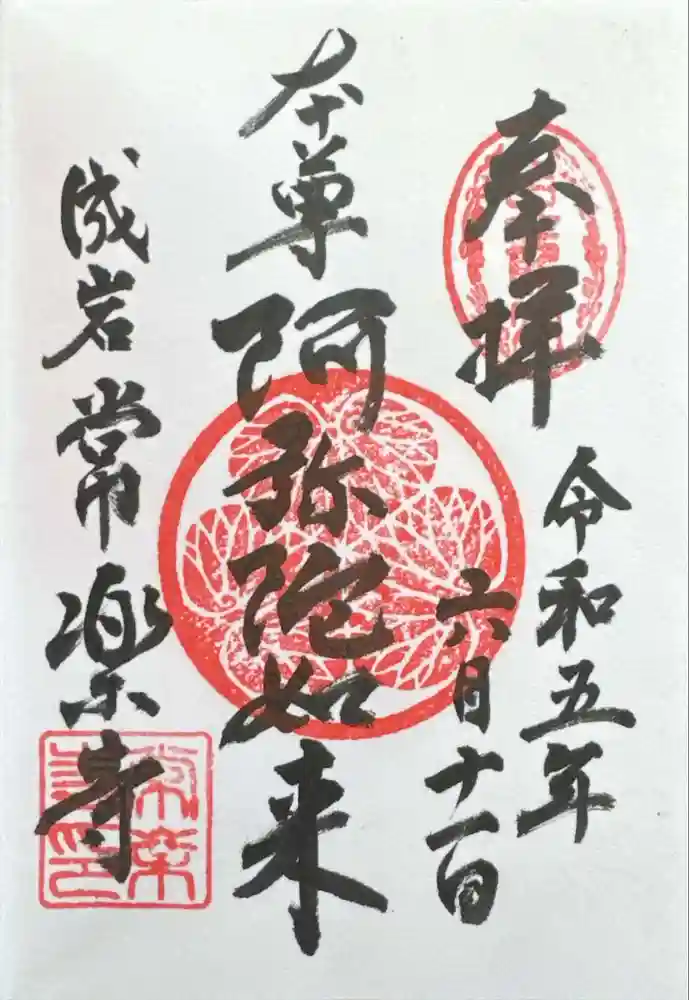 奉拝
令和五年
六月十一日
本尊阿弥陀如来
成岩常楽寺